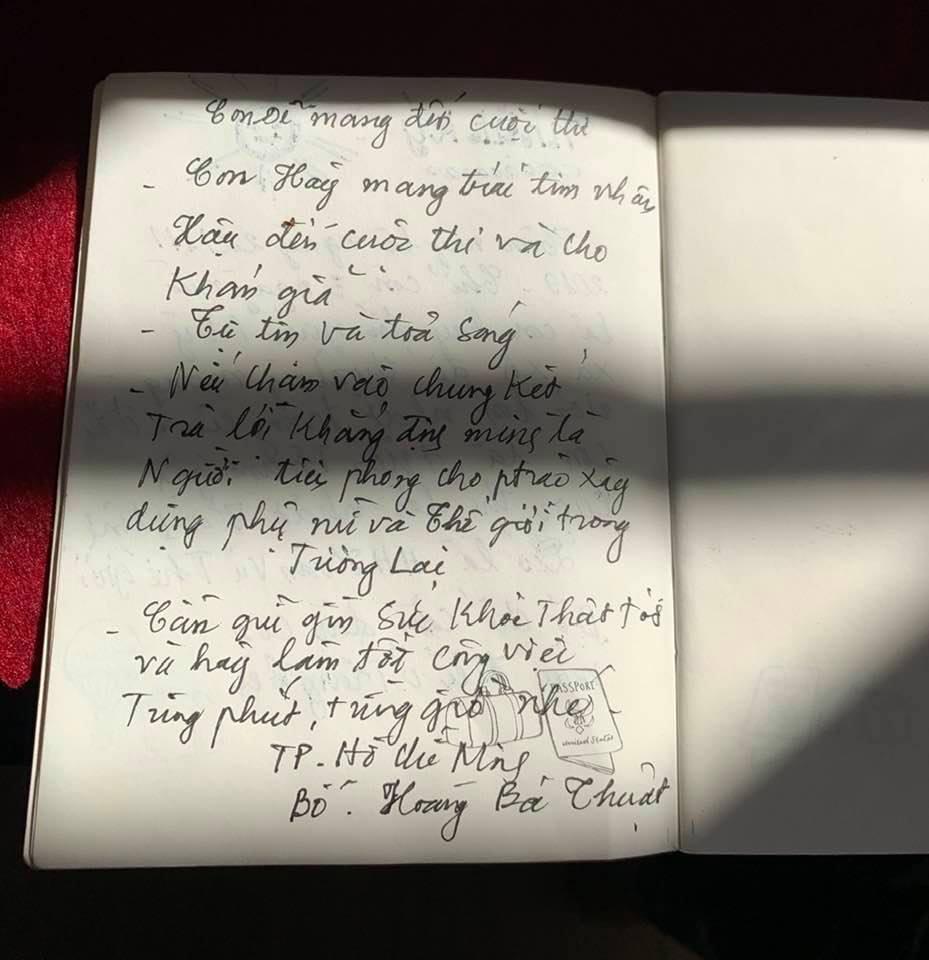 Con Để mang đến cuộc thi
- Con Hãy mang trái tim nhân
Hậu đến cuộc thi và cho
Khán giả
- Tự tin và toả sáng
- Nếu chạm vào chung kết
Trả lời Khẳng định mình là
Người tiên phong cho ptrào xây
dựng phụ nữ và Thế giới trong
Tương Lai
- Cần giữ gìn Sức Khỏe Thật tốt
và hãy làm tốt công việc
Từng phút, từng giờ nhé
PASSPORT
United States
TP. Hồ Chí Minh
Bố: Hoàng Bá Thuật